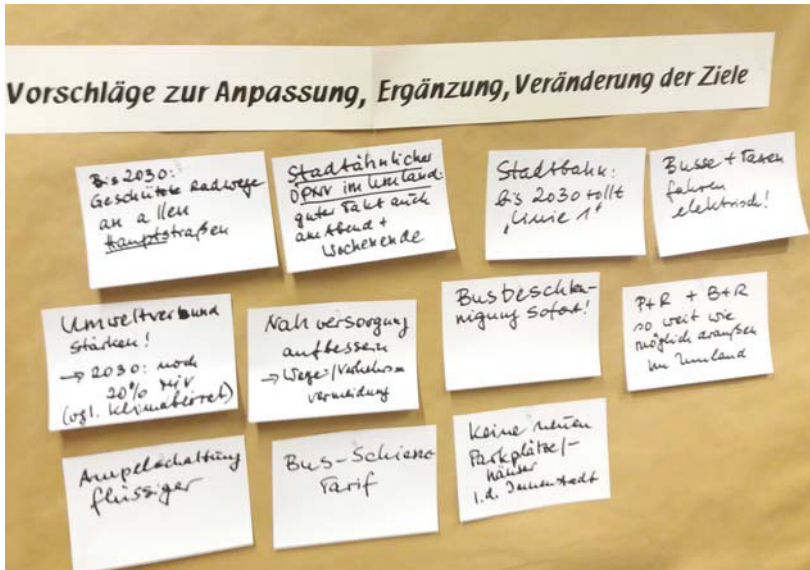 Vorschläge zur Anpassung, Ergänzung, Veränderung der Ziele
Bis 2030:
Geschützte Radwege
an allen
Hauptstraßen
Stadtähnlicher
ÖPNV im Umland:
guter Takt auch
am Abend +
Wochenende
Stadtbahn:
bis 2030 rollt
"Linie 1"
Busse + Taxen
fahren
elektrisch!
Umweltverbund
stärken!
→ 2030: noch
20% MIV
(vgl. Klimabeirat)
Nahversorgung
aufbessern
→ Wege-/Verkehrs
vermeidung
Busbeschleu-
nigung sofort!
P+R + B+R
so weit wie
möglich draußen
im Umland
Ampelschaltung
flüssiger
Bus-Schiene
Tarif
Keine neuen
Parkplätze/-
häuser
i.d. Innenstadt